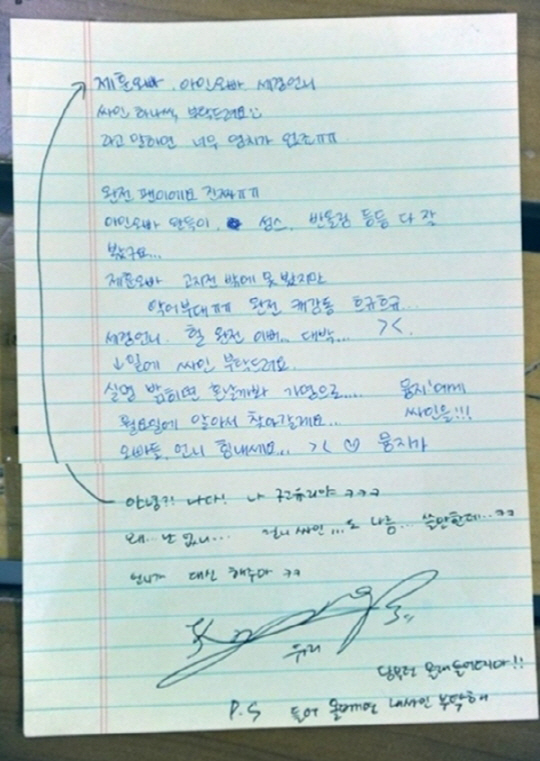 제훈오빠, 아인오빠 세경언니
싸인 하나씩, 부탁드려요
라고 말하면 너무 염치가 없죠ㅠㅠ
완전 팬이에요 진짜ㅠㅠ
아인오빠 완득이, 성스, 반올림 등등 다 잘
봤구요...
제훈오빠 고지전 밖에 못 봤지만
악어부대ㅠㅠ 완전 캐감동 흐규흐규...
세경언니. 헐 완전 이뻐... 대박... ><
↓일에 싸인 부탁드려요
실명 밝히면 혼날까봐 가명으로.... 뭉지!에게
월요일에 알아서 찾아갈게요... 싸인을!!!
오빠들, 언니 힘내세요... >< ♡ 뭉지가
안녕?! 나다! 나 유리야 ㅋㅋㅋ
왜... 난 없니... 언니 싸인...도 나름... 쓸만한데..ㅋㅋ
언니가 대신 해주마 ㅋㅋ
유리
P.S 들어 올때면 내싸인 부탁해